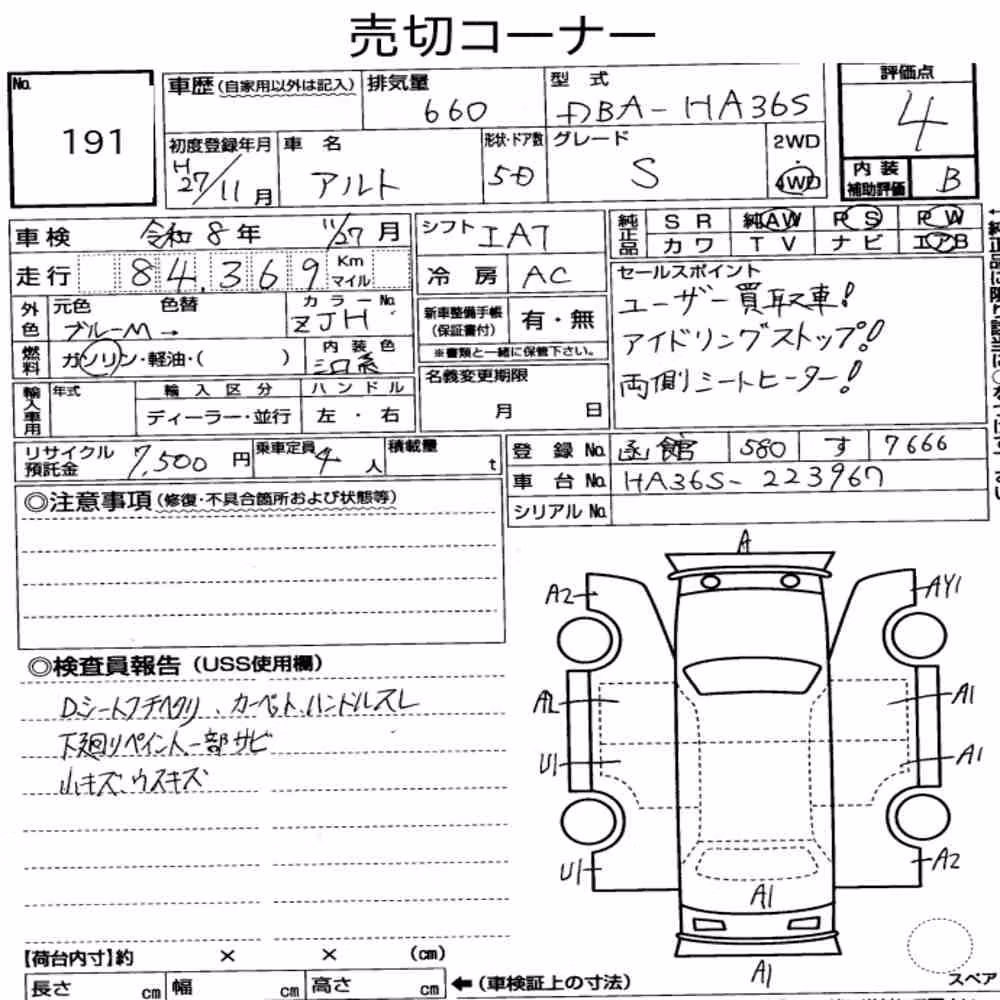 売切コーナー
No. 191
車歴(自家用以外は記入)
排気量 660
型式 DBA-HA36S
評価点 4
初度登録年月 H27/11月
車名 アルト
形状・ドア数 5D
グレード S
2WD・4WD
内装補助評価 B
車検 令和8年 11/27月
シフト IAT
純正品 SR 純AW PS PW
カワ TV ナビ エアB
走行 84,369 Km マイル
冷房 AC
セールスポイント
ユーザー買取車!
アイドリングストップ!
両側シートヒーター!
外色 元色 ブルーM→ 色替
カラーNo. ZJH
新車整備手帳(保証書付) 有・無
※書類と一緒に保管下さい。
燃料 ガソリン・軽油・( )
内装色
名義変更期限 月 日
輸入車用 年式
輸入区分 ディーラー・並行
ハンドル 左・右
リサイクル預託金 7,500円
乗車定員 4人
積載量 t
登録No. 函館 580 す 7666
車台No. HA36S-223967
シリアルNo.
◎注意事項(修復・不具合箇所および状態等)
◎検査員報告(USS使用欄)
Dシートフチヘタリ、カーペット、ハンドルスレ
下廻りペイント、一部サビ
小キズ、ウスキズ
A
A2 AY1
A2 A1
U1 A1
U1 A2
A1
A1
【荷台内寸】約 × × (cm)
長さ cm 幅 cm 高さ cm
←(車検証上の寸法)
スペア